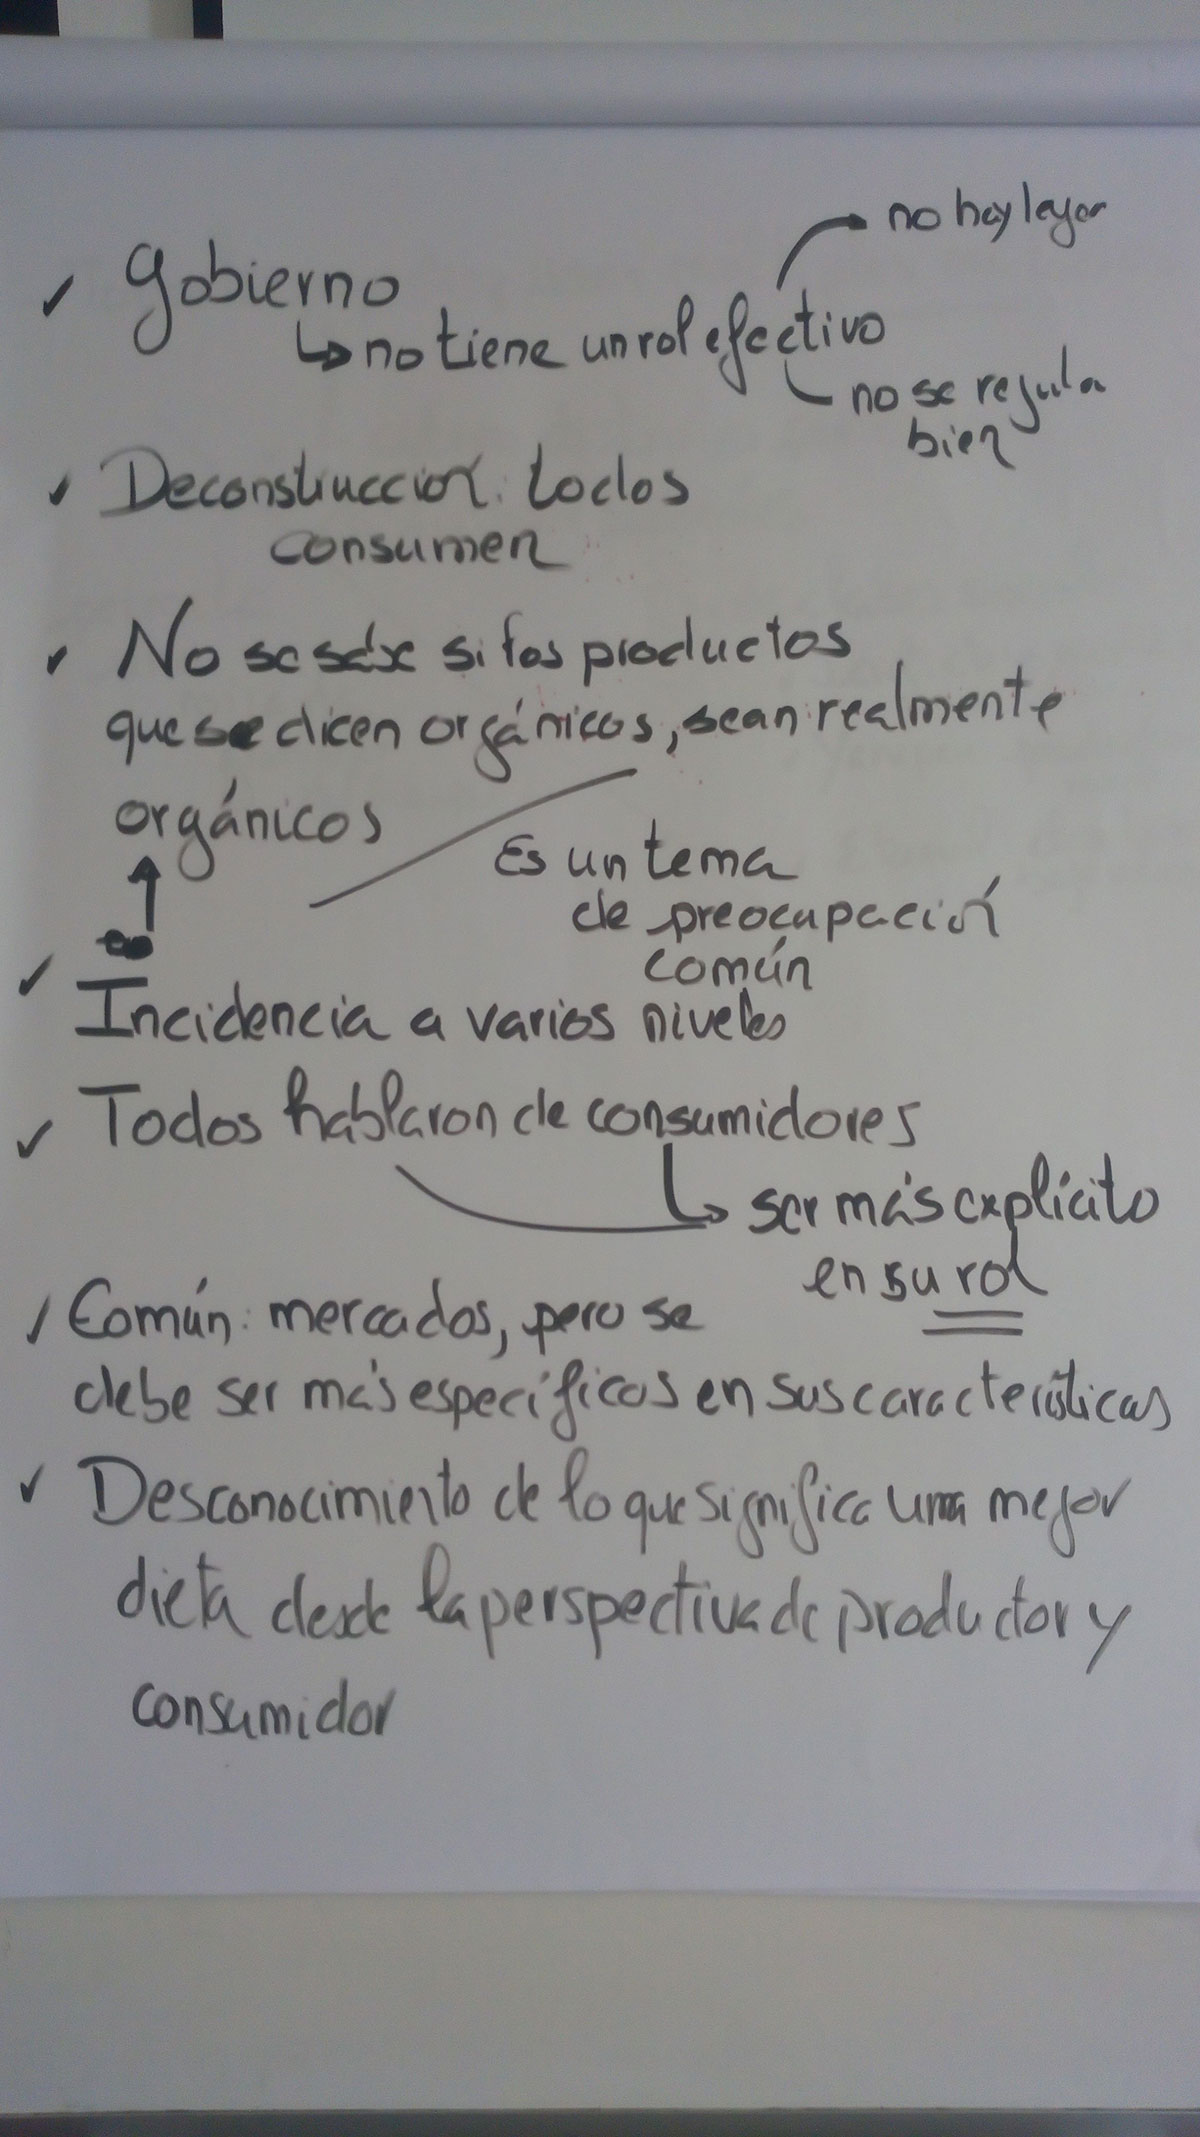 no hay leyes
✓ Gobierno
↳ no tiene un rol efectivo
no se regula
bien
✓ Deconstrucción: todos
consumen
✓ No se sabe si los productos
que se dicen orgánicos, sean realmente
orgánicos
Es un tema
de preocupación
común
✓ Incidencia a varios niveles
✓ Todos hablaron de consumidores
↳ ser más explícito
en su rol
✓ Común: mercados, pero se
debe ser más específicos en sus características
✓ Desconocimiento de lo que significa una mejor
dieta desde la perspectiva de productor y
consumidor